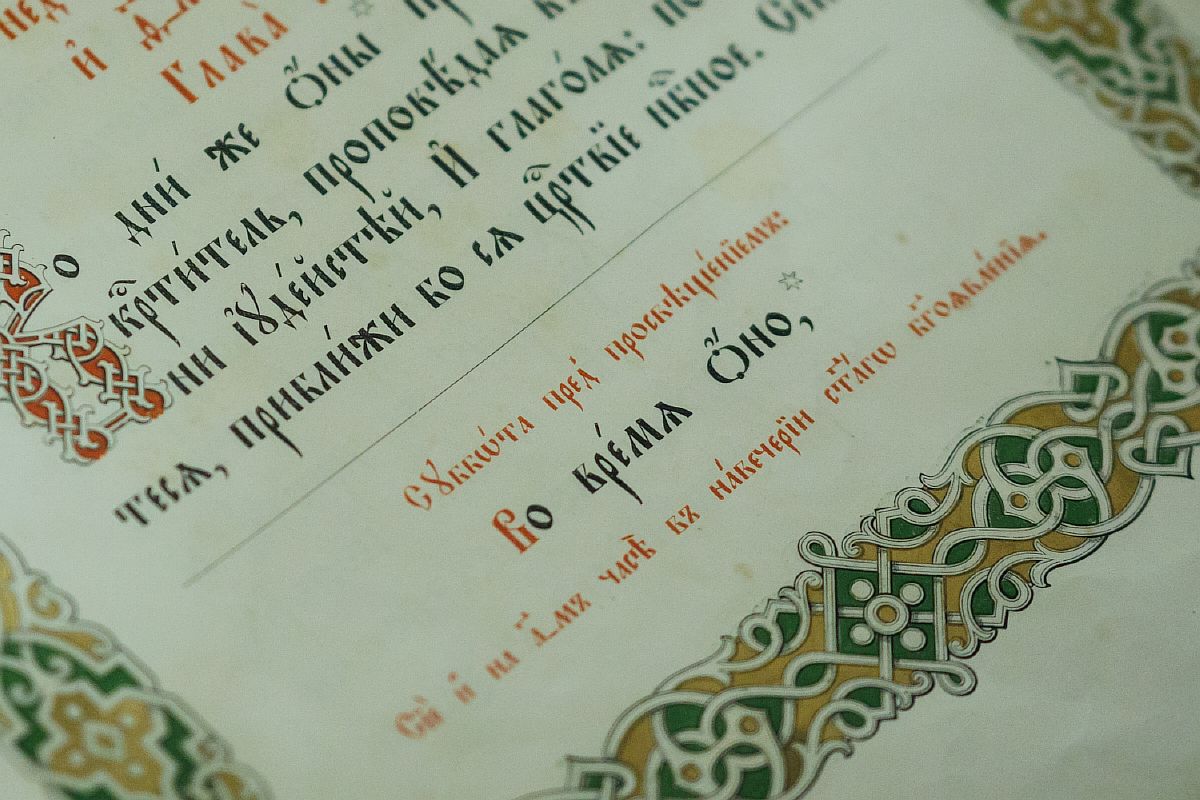 Глава̀
о дни́ же Ѻ҆́ны
крⷭ҇ти́тель, проповѣ́даѧ
ни і҆ꙋде́йстѣй, И҆ глаго́лѧ:
тесѧ, прибли́жи бо сѧ црⷭ҇твїе нбⷭ҇ное.
Сꙋббѡ́та пред̾ просвѣще́нїемъ:
Во вре́мѧ Ѻ҆́но,
и҆ на часѣ̀ въ наве́черїи ст҃а́гѡ бг҃оѧвле́нїѧ.